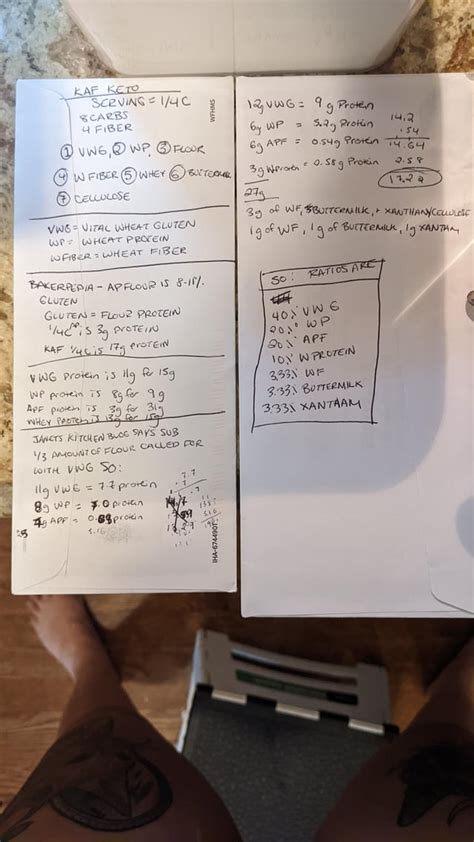 KAF KETO
SERVING = 1/4 C
8 CARBS
4 FIBER
① VWG, ② WP, ③ FLOUR
④ W FIBER ⑤ WHEY ⑥ BUTTERMILK
⑦ CELLULOSE
VWG = VITAL WHEAT GLUTEN
WP = WHEAT PROTEIN
WFIBER = WHEAT FIBER
BAKERPEDIA - AP FLOUR IS 8-11%
GLUTEN
GLUTEN = FLOUR PROTEIN
1/4C AP IS 3g PROTEIN
KAF 1/4C IS 17g PROTEIN
VWG protein is 11g for 15g
WP protein is 8g for 9g
APF protein is 3g for 31g
WHEY PROTEIN IS 13g for 15g
KITCHEN BLOG SAYS SUB
1/3 AMOUNT OF FLOUR CALLED FOR
WITH VWG SO:
11g VWG = 7.7 protein
8g WP = 7.0 protein
APF = protein
WFHM5
IHA-674490T
12g VWG = 9g Protein
6g WP = 5.2g Protein
6g APF = 0.54g Protein
3g Wprotein = 2.58g Protein
27g
14.2
.54
14.64
2.58
17.22
3g of WF, BUTTERMILK, + XANTHAN/CELLULOSE
1g of WF, 1g of BUTTERMILK, 1g XANTHAM
SO: RATIOS ARE
40% VWG
20% WP
20% APF
10% WPROTEIN
3.33% WF
3.33% BUTTERMILK
3.33% XANTHAM